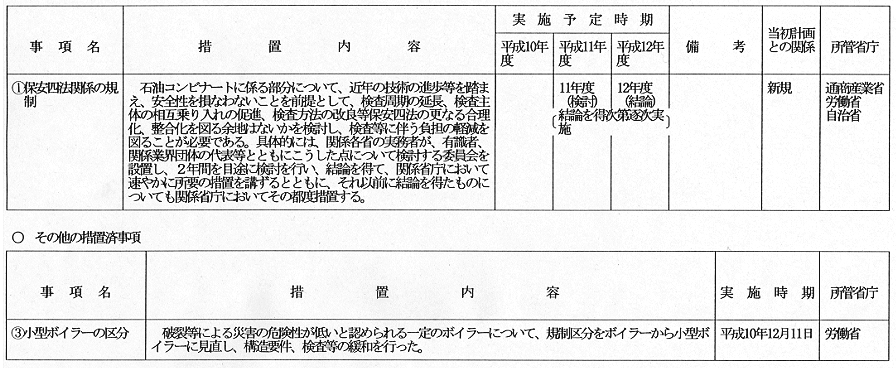 事項名 措置内容 実施予定時期 備考 当初計画との関係 所管省庁
平成10年度 平成11年度 平成12年度
①保安四法関係の規制
石油コンビナートに係る部分について、近年の技術の進歩等を踏ま
え、安全性を損なわないことを前提として、検査周期の延長、検査主
体の相互乗り入れの促進、検査方法の改良等保安四法の更なる合理
化、整合化を図る余地はないかを検討し、検査等に伴う負担の軽減を
図ることが必要である。具体的には、関係各省の実務者が、有識者、
関係業界団体の代表等とともにこうした点について検討する委員会を
設置し、２年間を目途に検討を行い、結論を得て、関係省庁において
速やかに所要の措置を講ずるとともに、それ以前に結論を得たものに
ついても関係省庁においてその都度措置する。
11年度 12年度
(検討) (結論)
(結論を得次第逐次実施)
新規
通商産業省
労働省
自治省
○ その他の措置済事項
事項名 措置内容 実施時期 所管省庁
③小型ボイラーの区分
破裂等による災害の危険性が低いと認められる一定のボイラーについて、規制区分をボイラーから小型ボ
イラーに見直し、構造要件、検査等の緩和を行った。
平成10年12月11日 労働省